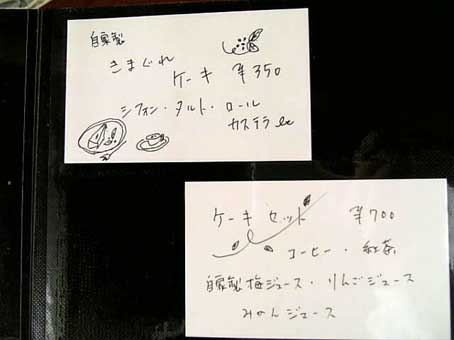 自家製
きまぐれ
ケーキ ¥350
シフォン・タルト・ロール
カステラ etc
ケーキセット ¥700
コーヒー・紅茶
自家製梅ジュース・りんごジュース
みかんジュース